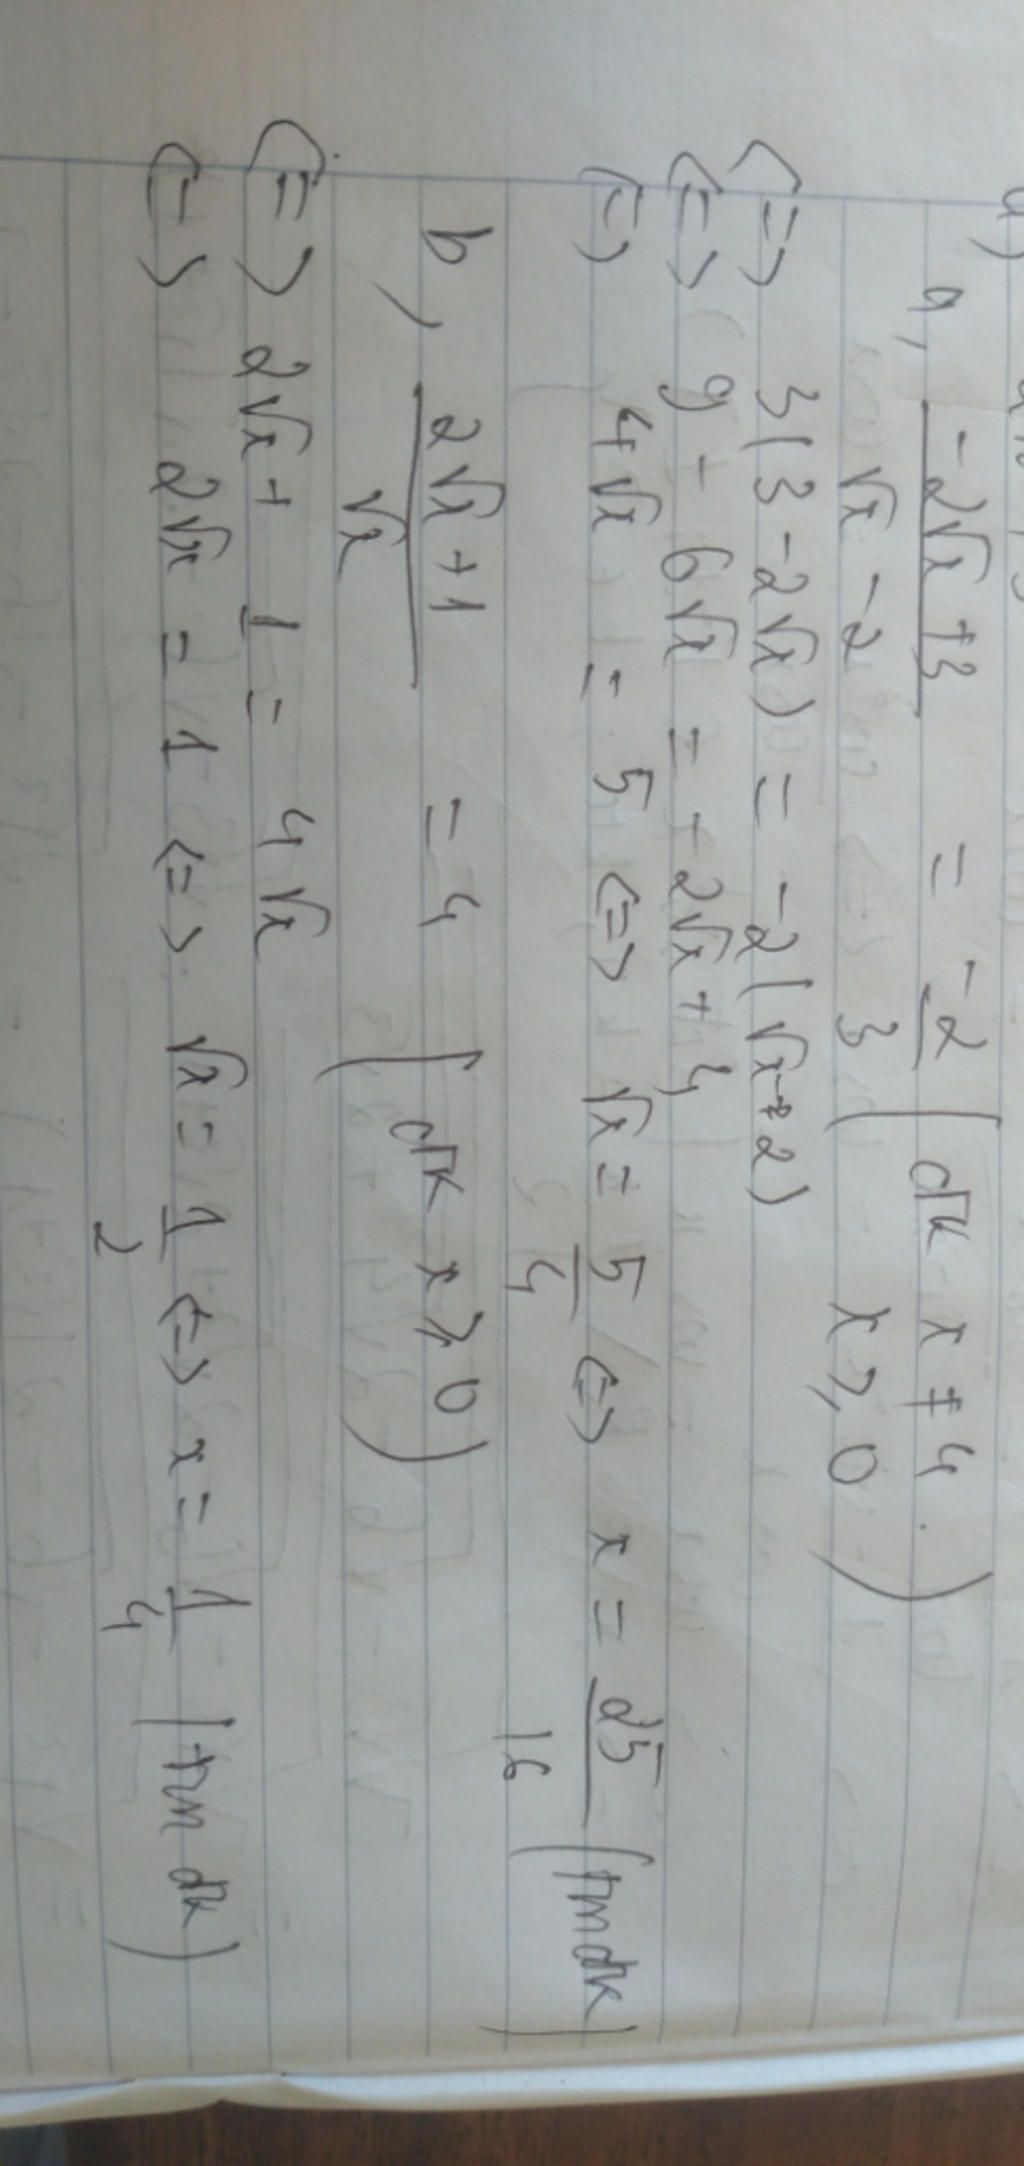 a, (-2√x + 3)/(√x - 2) = -2/3 (đk x ≠ 4 x ⩾ 0)
<=> 3(3 - 2√x) = -2(√x - 2)
<=> 9 - 6√x = -2√x + 4
<=> 4√x = 5 <=> √x = 5/4 <=> x = 25/16 (tmđk)
b, (2√x + 1)/√x = 4 (đk x ⩾ 0)
<=> 2√x + 1 = 4√x
<=> 2√x = 1 <=> √x = 1/2 <=> x = 1/4 (tm đk)